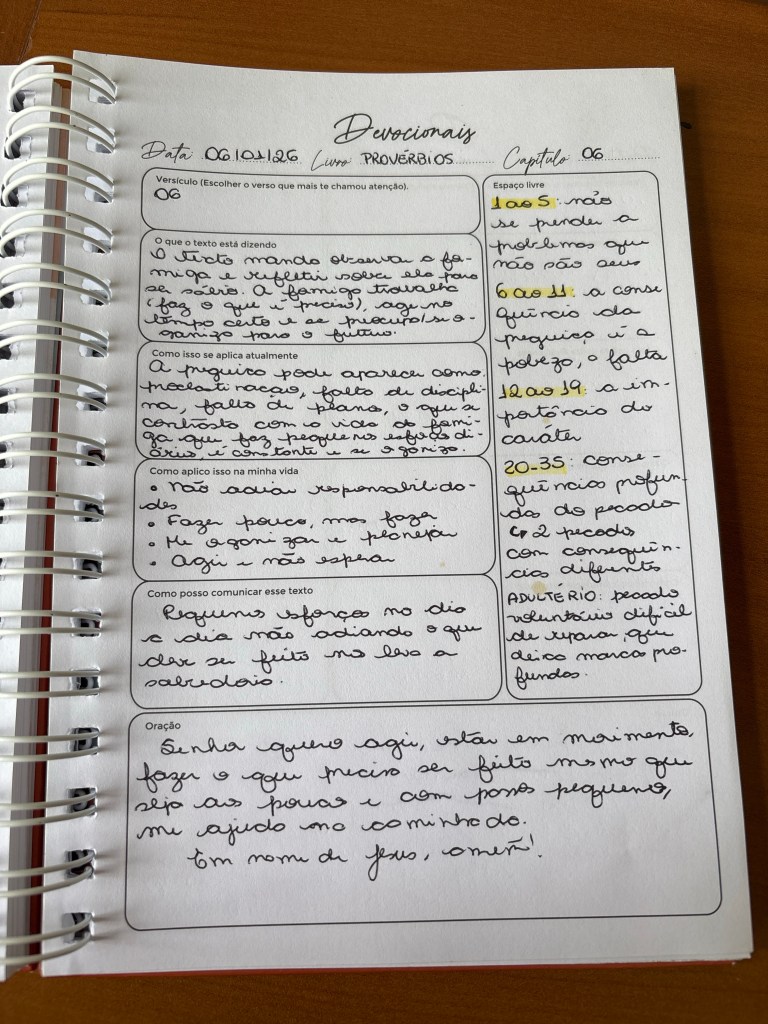 Devocionais
Data 06/01/26 Livro PROVÉRBIOS Capítulo 06
Versículo (Escolher o verso que mais te chamou atenção).
06
O que o texto está dizendo
O texto manda observar a for-
miga e refletir sobre ela para
ser sábio. A formiga trabalha
(faz o que é preciso), age no
tempo certo e se preocupa/se o-
rganiza para o futuro.
Como isso se aplica atualmente
A preguiça pode aparecer como
procrastinação, falta de discipli-
na, falta de plano, o que se
contrasta com a vida da formi-
ga que faz pequenos esforços di-
ários, é constante e se organiza.
Como aplico isso na minha vida
• Não adiar responsabilida-
des
• Fazer pouco, mas fazer
• Me organizar e planejar
• Agir e não esperar
Como posso comunicar esse texto
Pequenos esforços no dia
a dia não adiando o que
deve ser feito nos leva a
sabedoria.
Espaço livre
1 ao 5: não
se prender a
problemas que
não são seus
6 ao 11: a conse
quência da
preguiça é a
pobreza, a falta
12 ao 19: a im-
portância do
caráter
20-35: conse-
quências profun-
das do pecado
↳ 2 pecados
com consequên-
cias diferentes
ADULTÉRIO: pecado
voluntário difícil
de reparar, que
deixa marcas pro-
fundas.
Oração
Senhor quero agir, estar em movimento,
fazer o que precisa ser feito mesmo que
seja aos poucos e com passos pequenos,
me ajuda na caminhada.
Em nome de Jesus, amém!